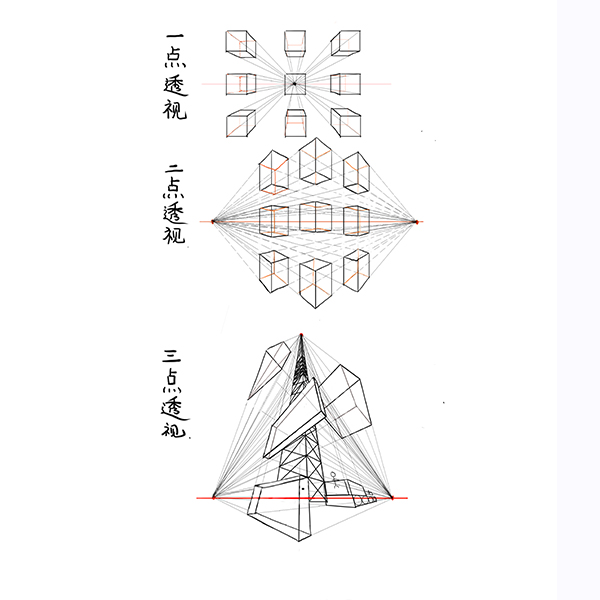 一点透视
二点透视
三点透视